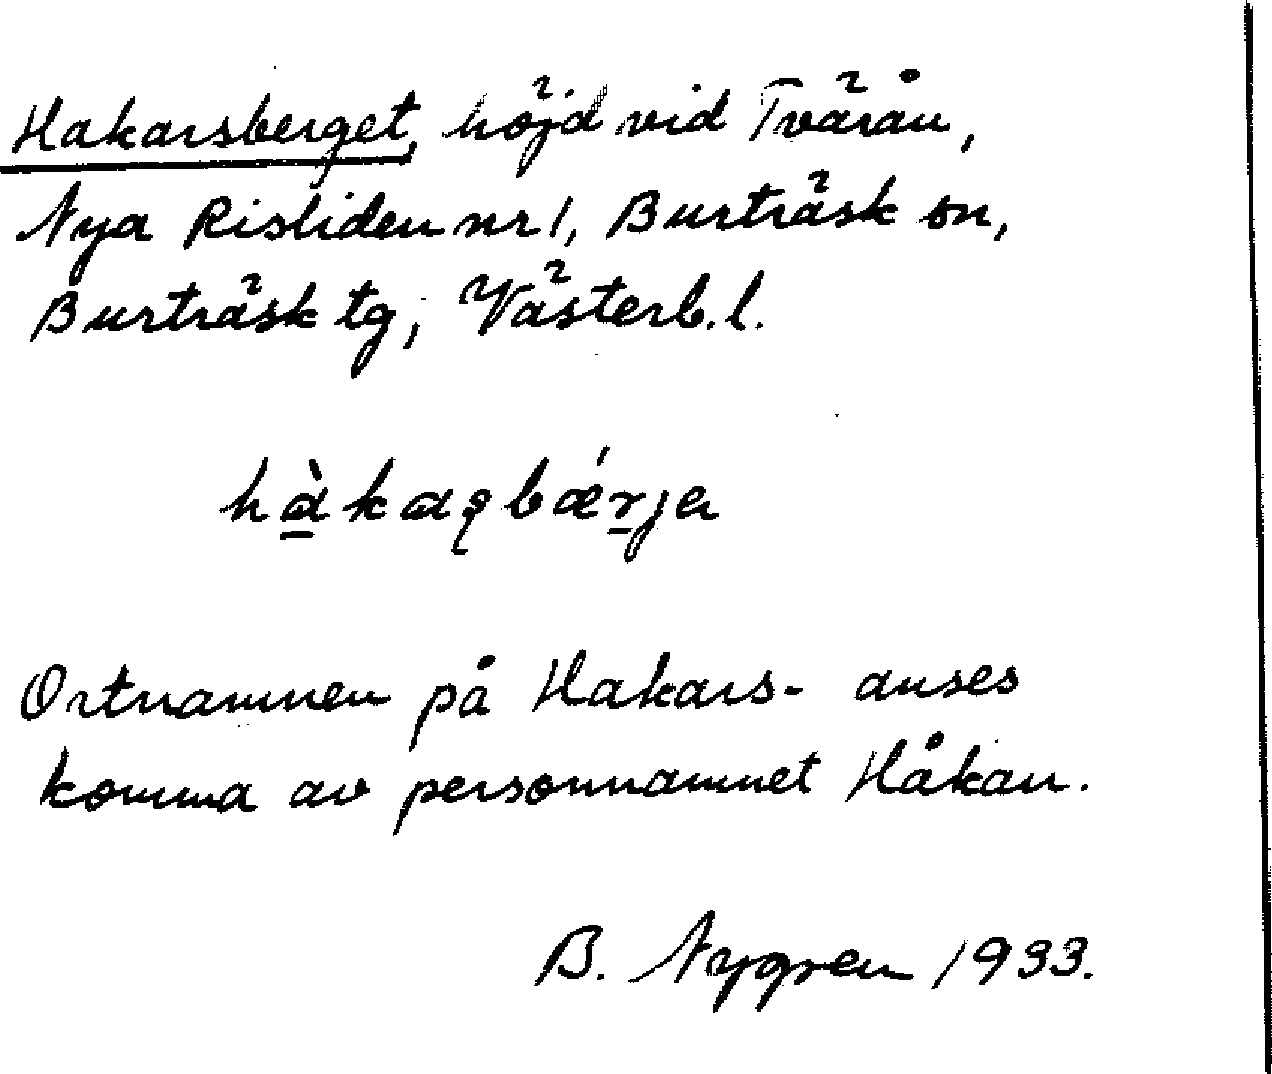 Hakarsberget, höjd vid Tvärån,
Nya Risliden nr 1, Burträsk sn,
Burträsk tg, Västerb. l.
Ortnamnen på Hakars- anses
komma av personnamnet Håkan.
B. Nygren 1933.